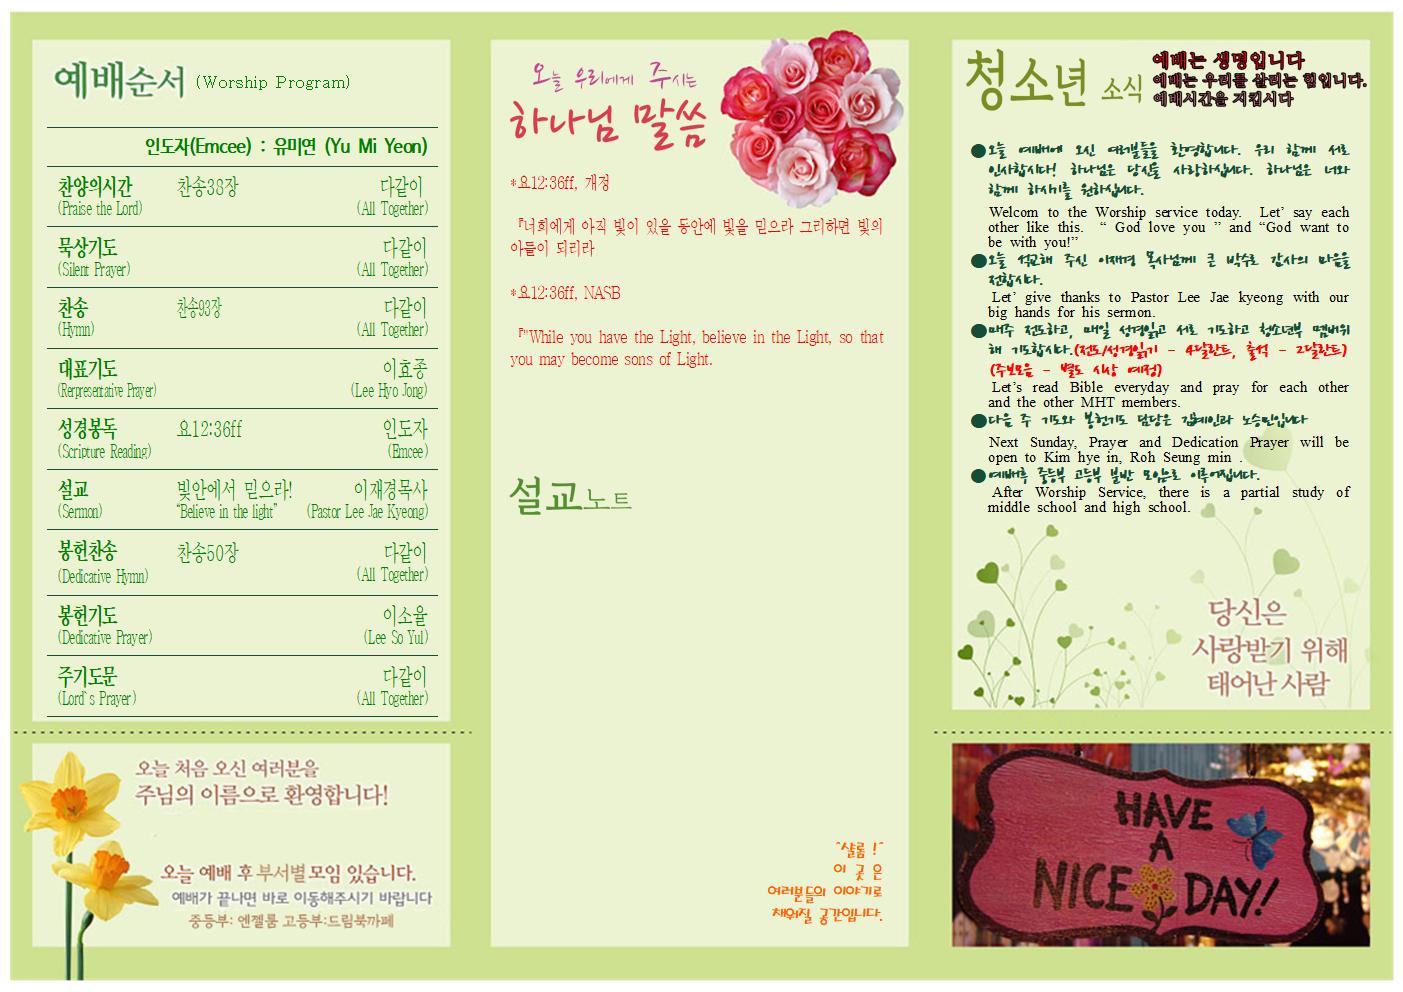 예배순서 (Worship Program)
인도자(Emcee) : 유미연 (Yu Mi Yeon)
찬양의시간 찬송38장 다같이
(Praise the Lord) (All Together)
묵상기도 다같이
(Silent Prayer) (All Together)
찬송 찬송93장 다같이
(Hymn) (All Together)
대표기도 이효종
(Rerpresentative Prayer) (Lee Hyo Jong)
성경봉독 요12:36ff 인도자
(Scripture Reading) (Emcee)
설교 빛안에서 믿으라! 이재경목사
(Sermon) “Believe in the light” (Pastor Lee Jae Kyeong)
봉헌찬송 찬송50장 다같이
(Dedicative Hymn) (All Together)
봉헌기도 이소율
(Dedicative Prayer) (Lee So Yul)
주기도문 다같이
(Lord`s Prayer) (All Together)
오늘 처음 오신 여러분을
주님의 이름으로 환영합니다!
오늘 예배 후 부서별 모임 있습니다.
예배가 끝나면 바로 이동해주시기 바랍니다
중등부: 엔젤룸 고등부:드림북까페
오늘 우리에게 주시는
하나님 말씀
*요12:36ff, 개정
『너희에게 아직 빛이 있을 동안에 빛을 믿으라 그리하면 빛의
아들이 되리라
*요12:36ff, NASB
『"While you have the Light, believe in the Light, so that
you may become sons of Light.
설교노트
^샬롬 !^
이 곳 은
여러분들의 이야기로
채워질 공간입니다.
청소년 소식
예배는 생명입니다
예배는 우리를 살리는 힘입니다.
예배시간을 지킵시다
●오늘 예배에 오신 여러분들을 환영합니다. 우리 함께 서로
인사합시다! 하나님은 당신을 사랑하십니다. 하나님은 너와
함께 하시기를 원하십니다.
Welcom to the Worship service today. Let’ say each
other like this. “ God love you ” and “God want to
be with you!”
●오늘 설교해 주신 이재경 목사님께 큰 박수로 감사의 마음을
전합시다.
Let’ give thanks to Pastor Lee Jae kyeong with our
big hands for his sermon.
●매주 전도하고, 매일 성경읽고 서로 기도하고 청소년부 멤버위
해 기도합시다.(전도/성경읽기 - 4달란트, 출석 - 2달란트)
(주보모음 - 별도 시상 예정)
Let’s read Bible everyday and pray for each other
and the other MHT members.
●다음 주 기도와 봉헌기도 담당은 김혜인과 노승민입니다
Next Sunday, Prayer and Dedication Prayer will be
open to Kim hye in, Roh Seung min .
●예배후 중등부 고등부 분반 모임으로 이루어집니다.
After Worship Service, there is a partial study of
middle school and high school.
당신은
사랑받기 위해
태어난 사람
HAVE
A
NICE DAY!